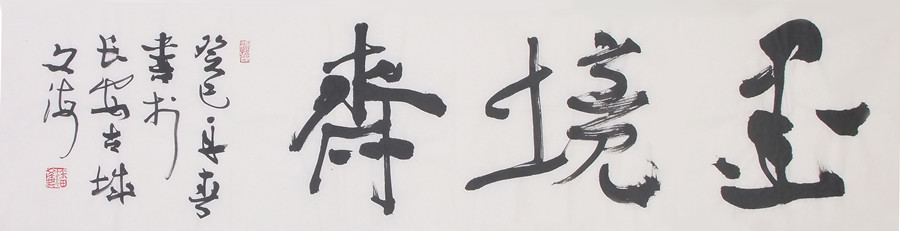 墨境斋
癸巳年春
書於
長安古城
文海